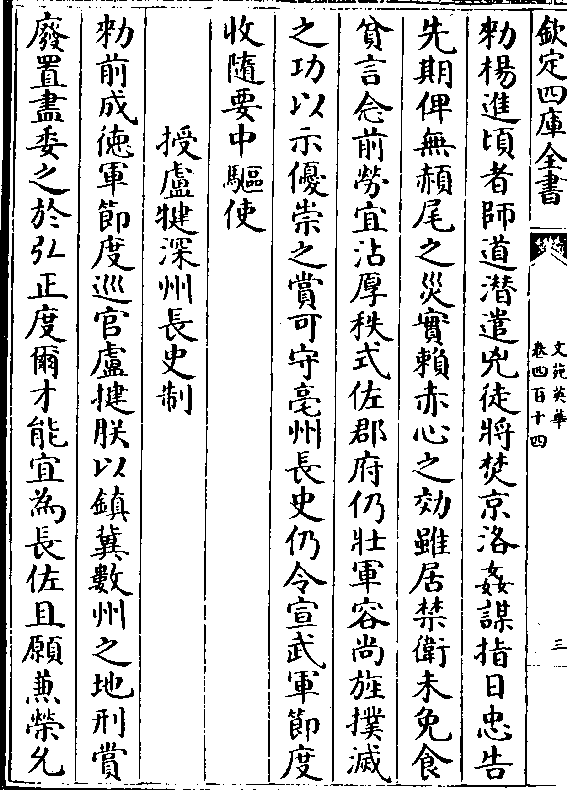 欽定四庫全書
文苑英華
卷四百十四
三
勑楊進頃者師道潛遣兇徒將焚京洛姦謀指日忠告
先期俾無赬尾之災實賴赤心之効雖居禁衛未免食
貧言念前勞宜沾厚秩式佐郡府仍壯軍容尚旌撲滅
之功以示優崇之賞可守亳州長史仍令宣武軍節度
收隨要中驅使
授盧犍深州長史制
勑前成徳軍節度巡官盧揵朕以鎮冀數州之地刑賞
廢置盡委之於弘正度爾才能宜為長佐且願兼榮允